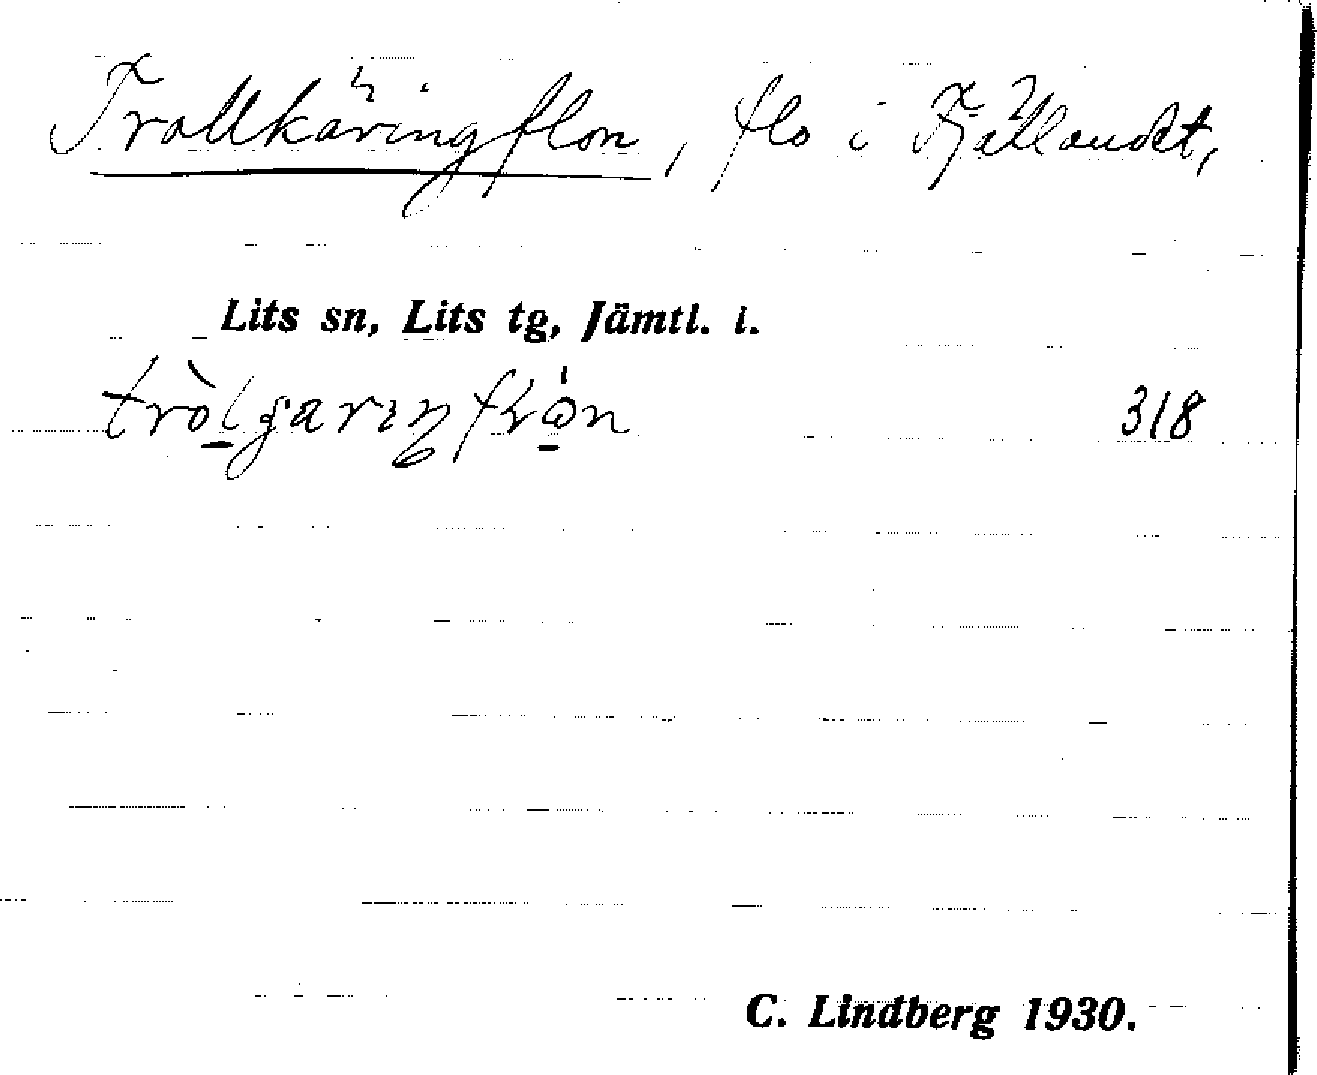 Trollkäringflon, flo i Fjällandet,
Lits sn, Lits tg, Jämtl. l.
318
C. Lindberg 1930.